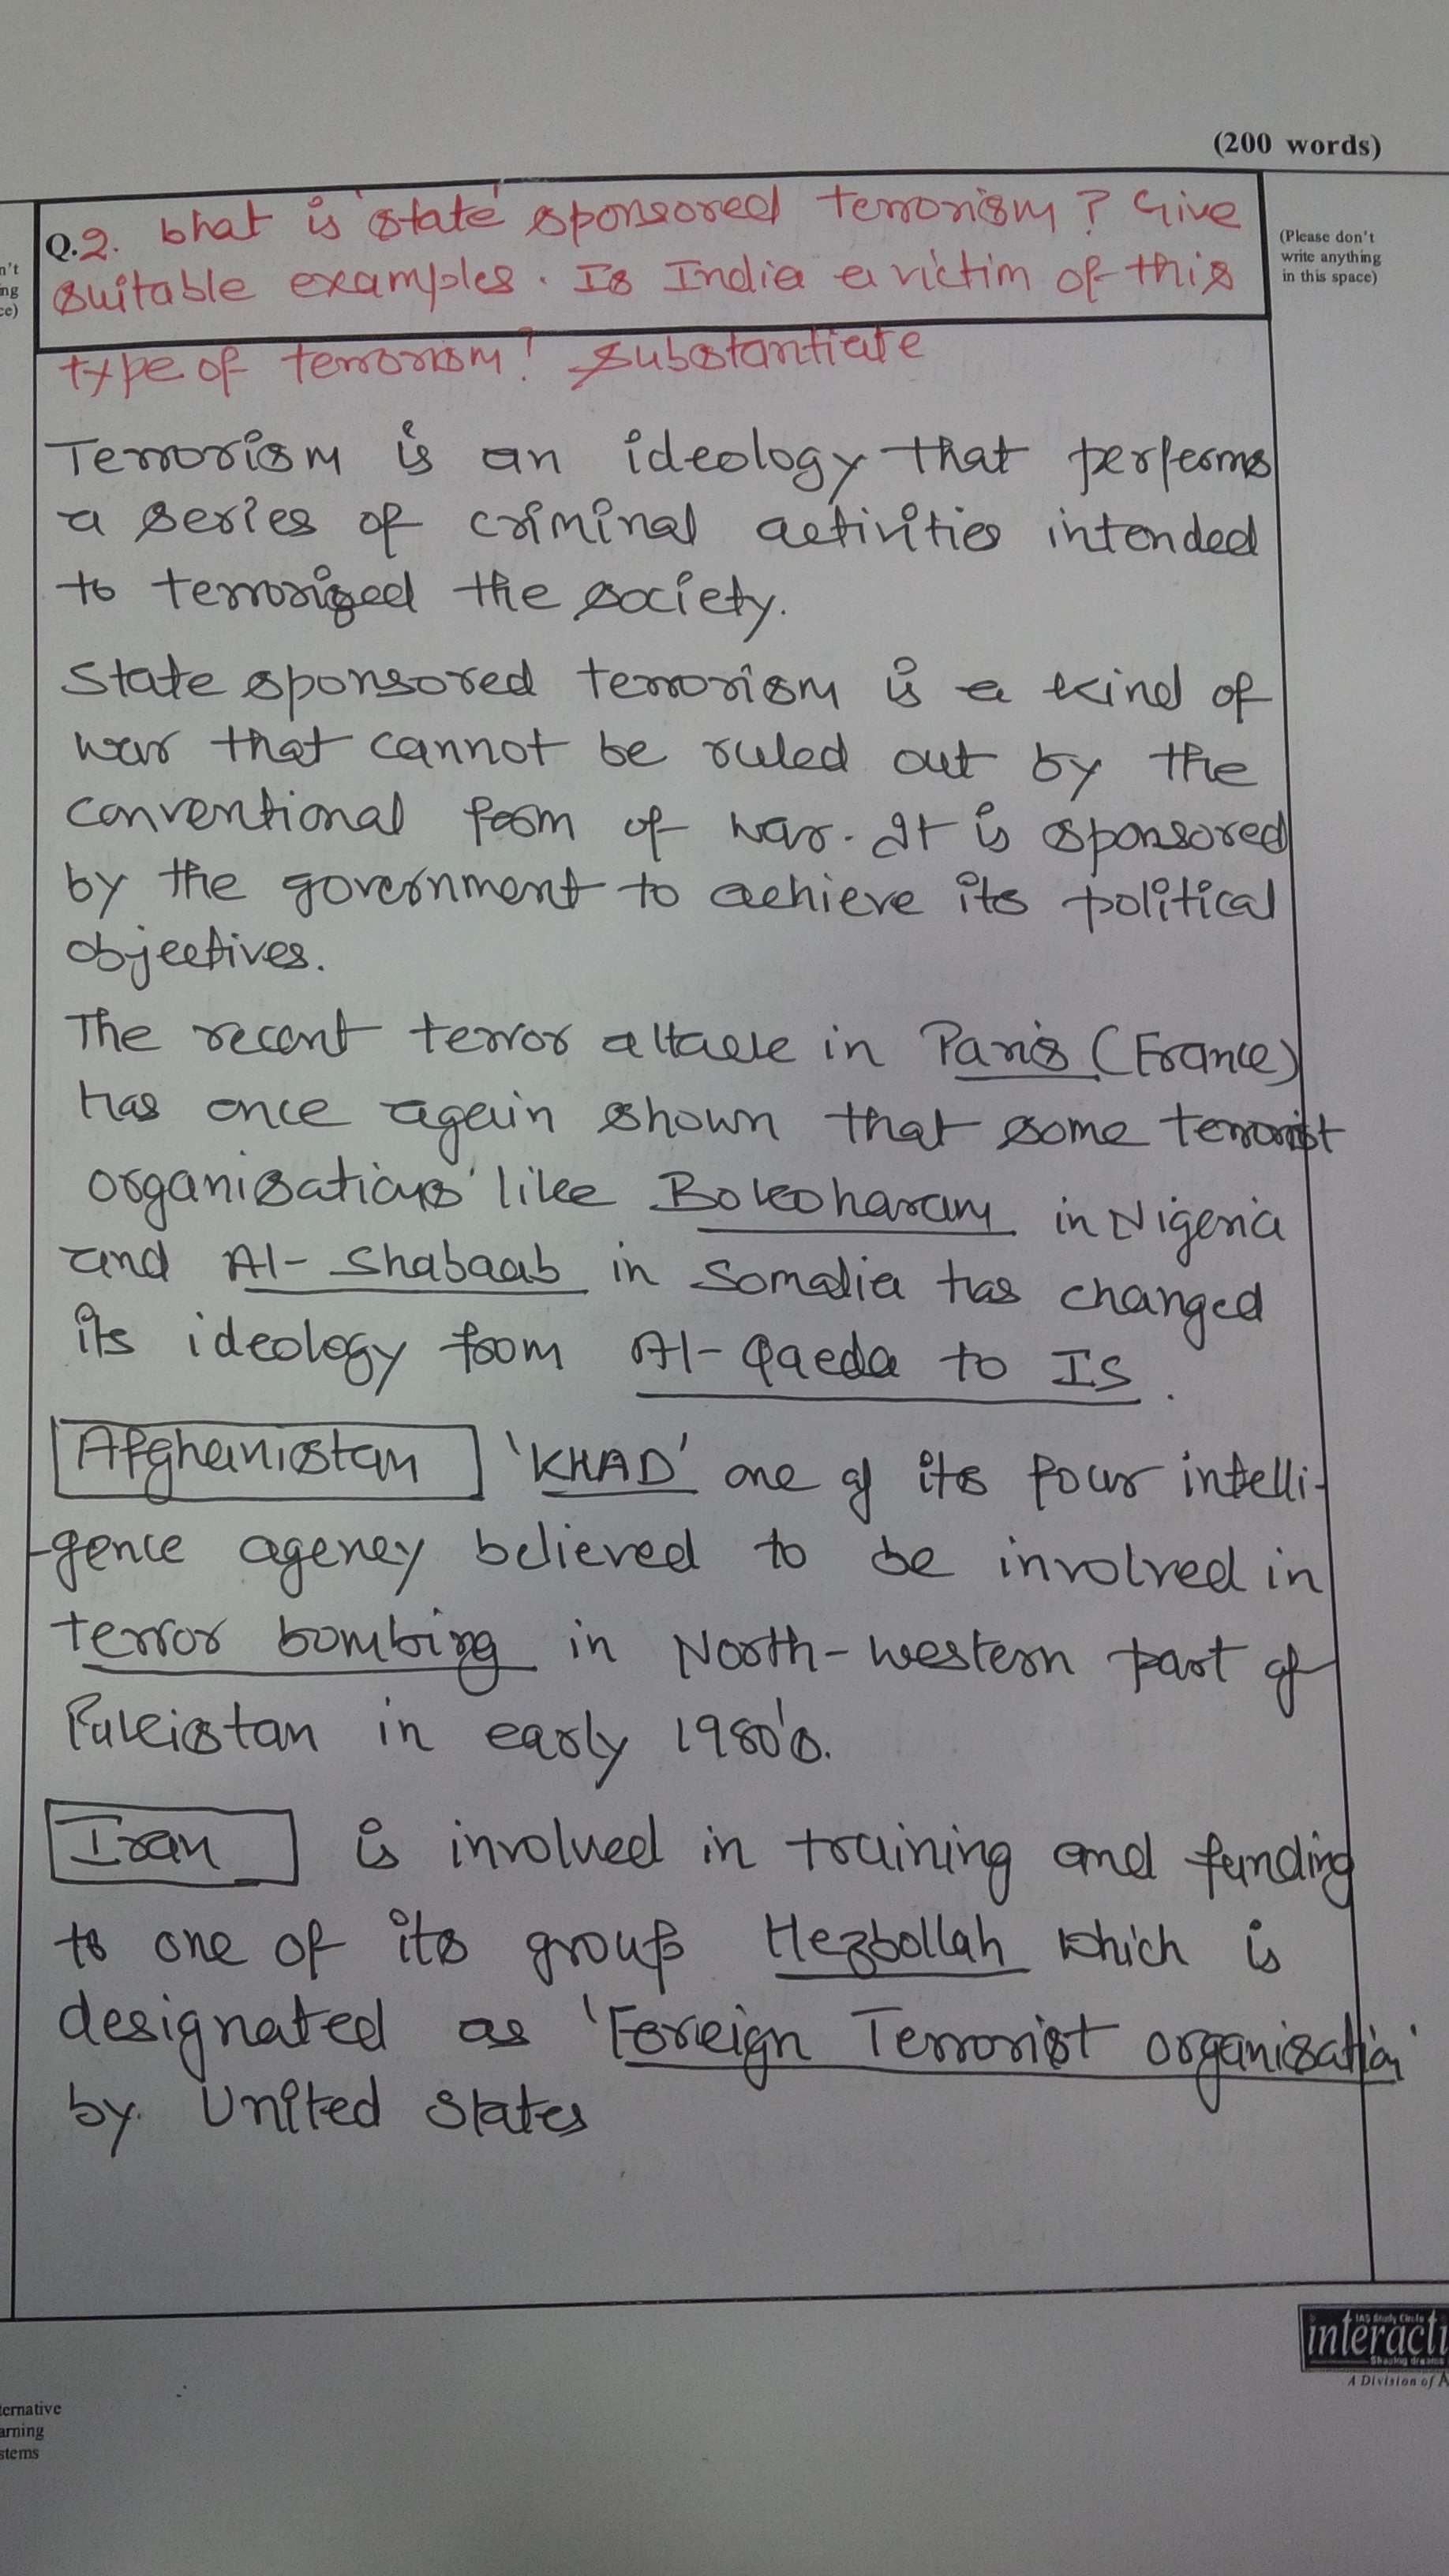 (200 words)
Q.2. What is 'state' sponsored terrorism? Give
suitable examples. Is India a victim of this
type of terrorism? Substantiate
(Please don't
write anything
in this space)
n't
ng
ce)
Terrorism is an ideology that performs
a series of criminal activities intended
to terrorized the society.
State sponsored terrorism is a kind of
war that cannot be ruled out by the
conventional form of war. It is sponsored
by the government to achieve its political
objectives.
The recent terror attack in Paris (France)
has once again shown that some terrorist
organisations like Bokoharam in Nigeria
and Al-Shabaab in Somalia has changed
its ideology from Al-Qaeda to IS.
Afghanistan 'KHAD' one of its four intelli-
-gence agency believed to be involved in
terror bombing in North-western part of
Pakistan in early 1980's.
Iran is involved in training and funding
to one of its group Hezbollah which is
designated as 'Foreign Terrorist organisation'
by United States
IAS Study Circle
interacti
Shaping dreams
A Division of A
ternative
arning
stems